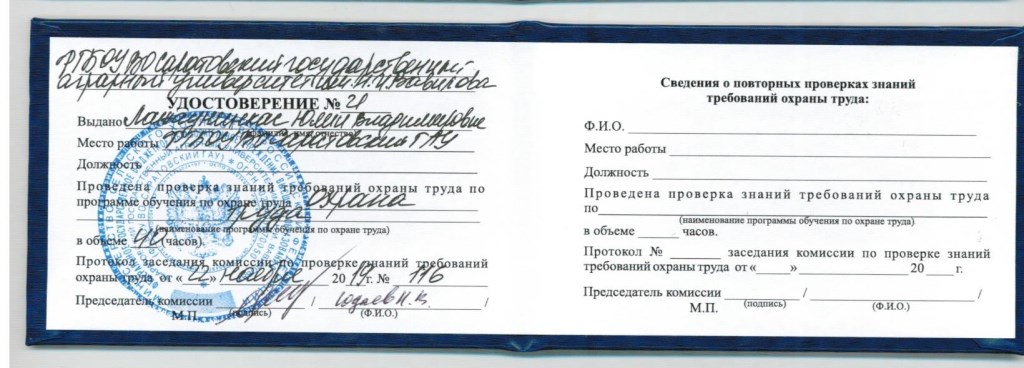 ФГБОУ ВО Саратовский государственный
аграрный университет им. Н.И. Вавилова
УДОСТОВЕРЕНИЕ № 21
Выдано Юлии Владимировне
(фамилия, имя, отчество)
Место работы ФГБОУ ВО Саратовский ГАУ
Должность
Проведена проверка знаний требований охраны труда по
программе обучения по охране труда Охрана
труда
(наименование программы обучения по охране труда)
в объеме 40 часов).
Протокол заседания комиссии по проверке знаний требований
охраны труда от «22» ноября 2019 г. № 116
Председатель комиссии / /
М.П. (подпись) (Ф.И.О.)
Сведения о повторных проверках знаний
требований охраны труда:
Ф.И.О.
Место работы
Должность
Проведена проверка знаний требований охраны труда
по
(наименование программы обучения по охране труда)
в объеме часов.
Протокол № заседания комиссии по проверке знаний
требований охраны труда от « » 20 г.
Председатель комиссии / /
М.П. (подпись) (Ф.И.О.)